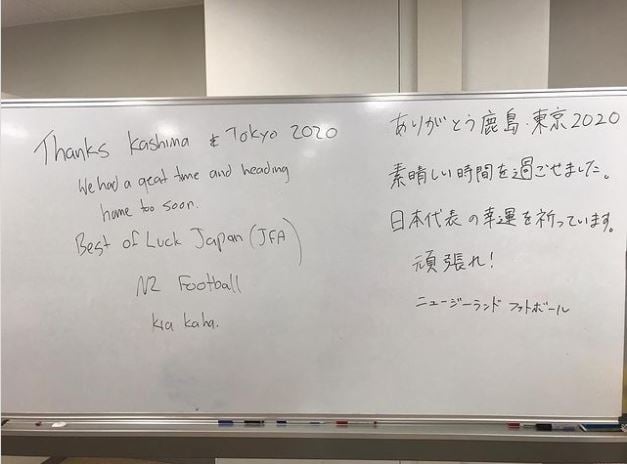 Thanks Kashima & Tokyo 2020
We had a great time and heading
home too soon.
Best of Luck Japan (JFA)
NZ Football
kia kaha.
ありがとう鹿島・東京2020
素晴しい時間を過ごせました。
日本代表の幸運を祈っています。
頑張れ!
ニュージーランド フットボール